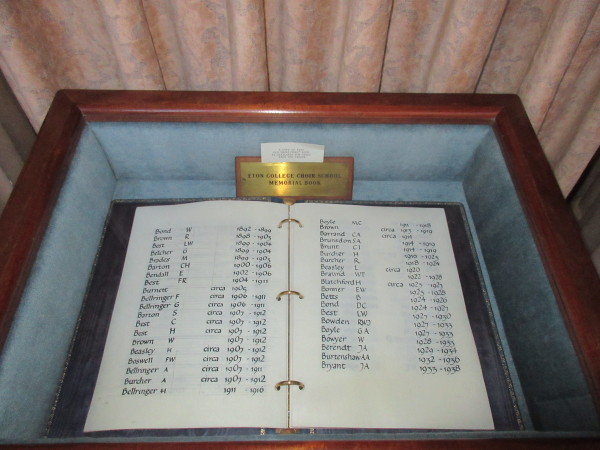 ETON COLLEGE CHOIR SCHOOL
MEMORIAL BOOK
Bond W 1892 - 1899
Brown R 1898 - 1905
Best LW 1899 - 1904
Belcher G 1899 - 1904
Brodes M 1899 - 1905
Barton CH 1900 - 1906
Bendall E 1902 - 1906
Best FR 1904 - 1911
Barnett circa 1905
Bellringer F circa 1906 - 1911
Bellringer G circa 1906 - 1911
Barton S circa 1907 - 1912
Best C circa 1907 - 1912
Best H circa 1907 - 1912
Brown W 1907 - 1912
Beasley H circa 1907 - 1912
Boswell FW circa 1907 - 1912
Bellringer A circa 1907 - 1911
Burcher A circa 1907 - 1912
Bellringer H 1911 - 1916
Boyle MC 1911 - 1918
Brown circa 1913 - 1919
Barrand CA circa 1914
Brunsdon SA 1914 - 1919
Brant CJ 1914 - 1919
Burcher H 1915 - 1920
Burcher R 1918 - 1924
Beasley L circa 1920
Braund WT 1922 - 1928
Blatchford H circa 1923 - 1925
Bonner EW 1923 - 1928
Betts B 1924 - 1926
Bond DC 1924 - 1927
Best LW 1927 - 1930
Bowden RWJ 1927 - 1933
Boyle GA 1927 - 1933
Bowyer W 1928 - 1933
Berendt JA 1929 - 1934
Burtenshaw AA 1932 - 1936
Bryant JA 1933 - 1938